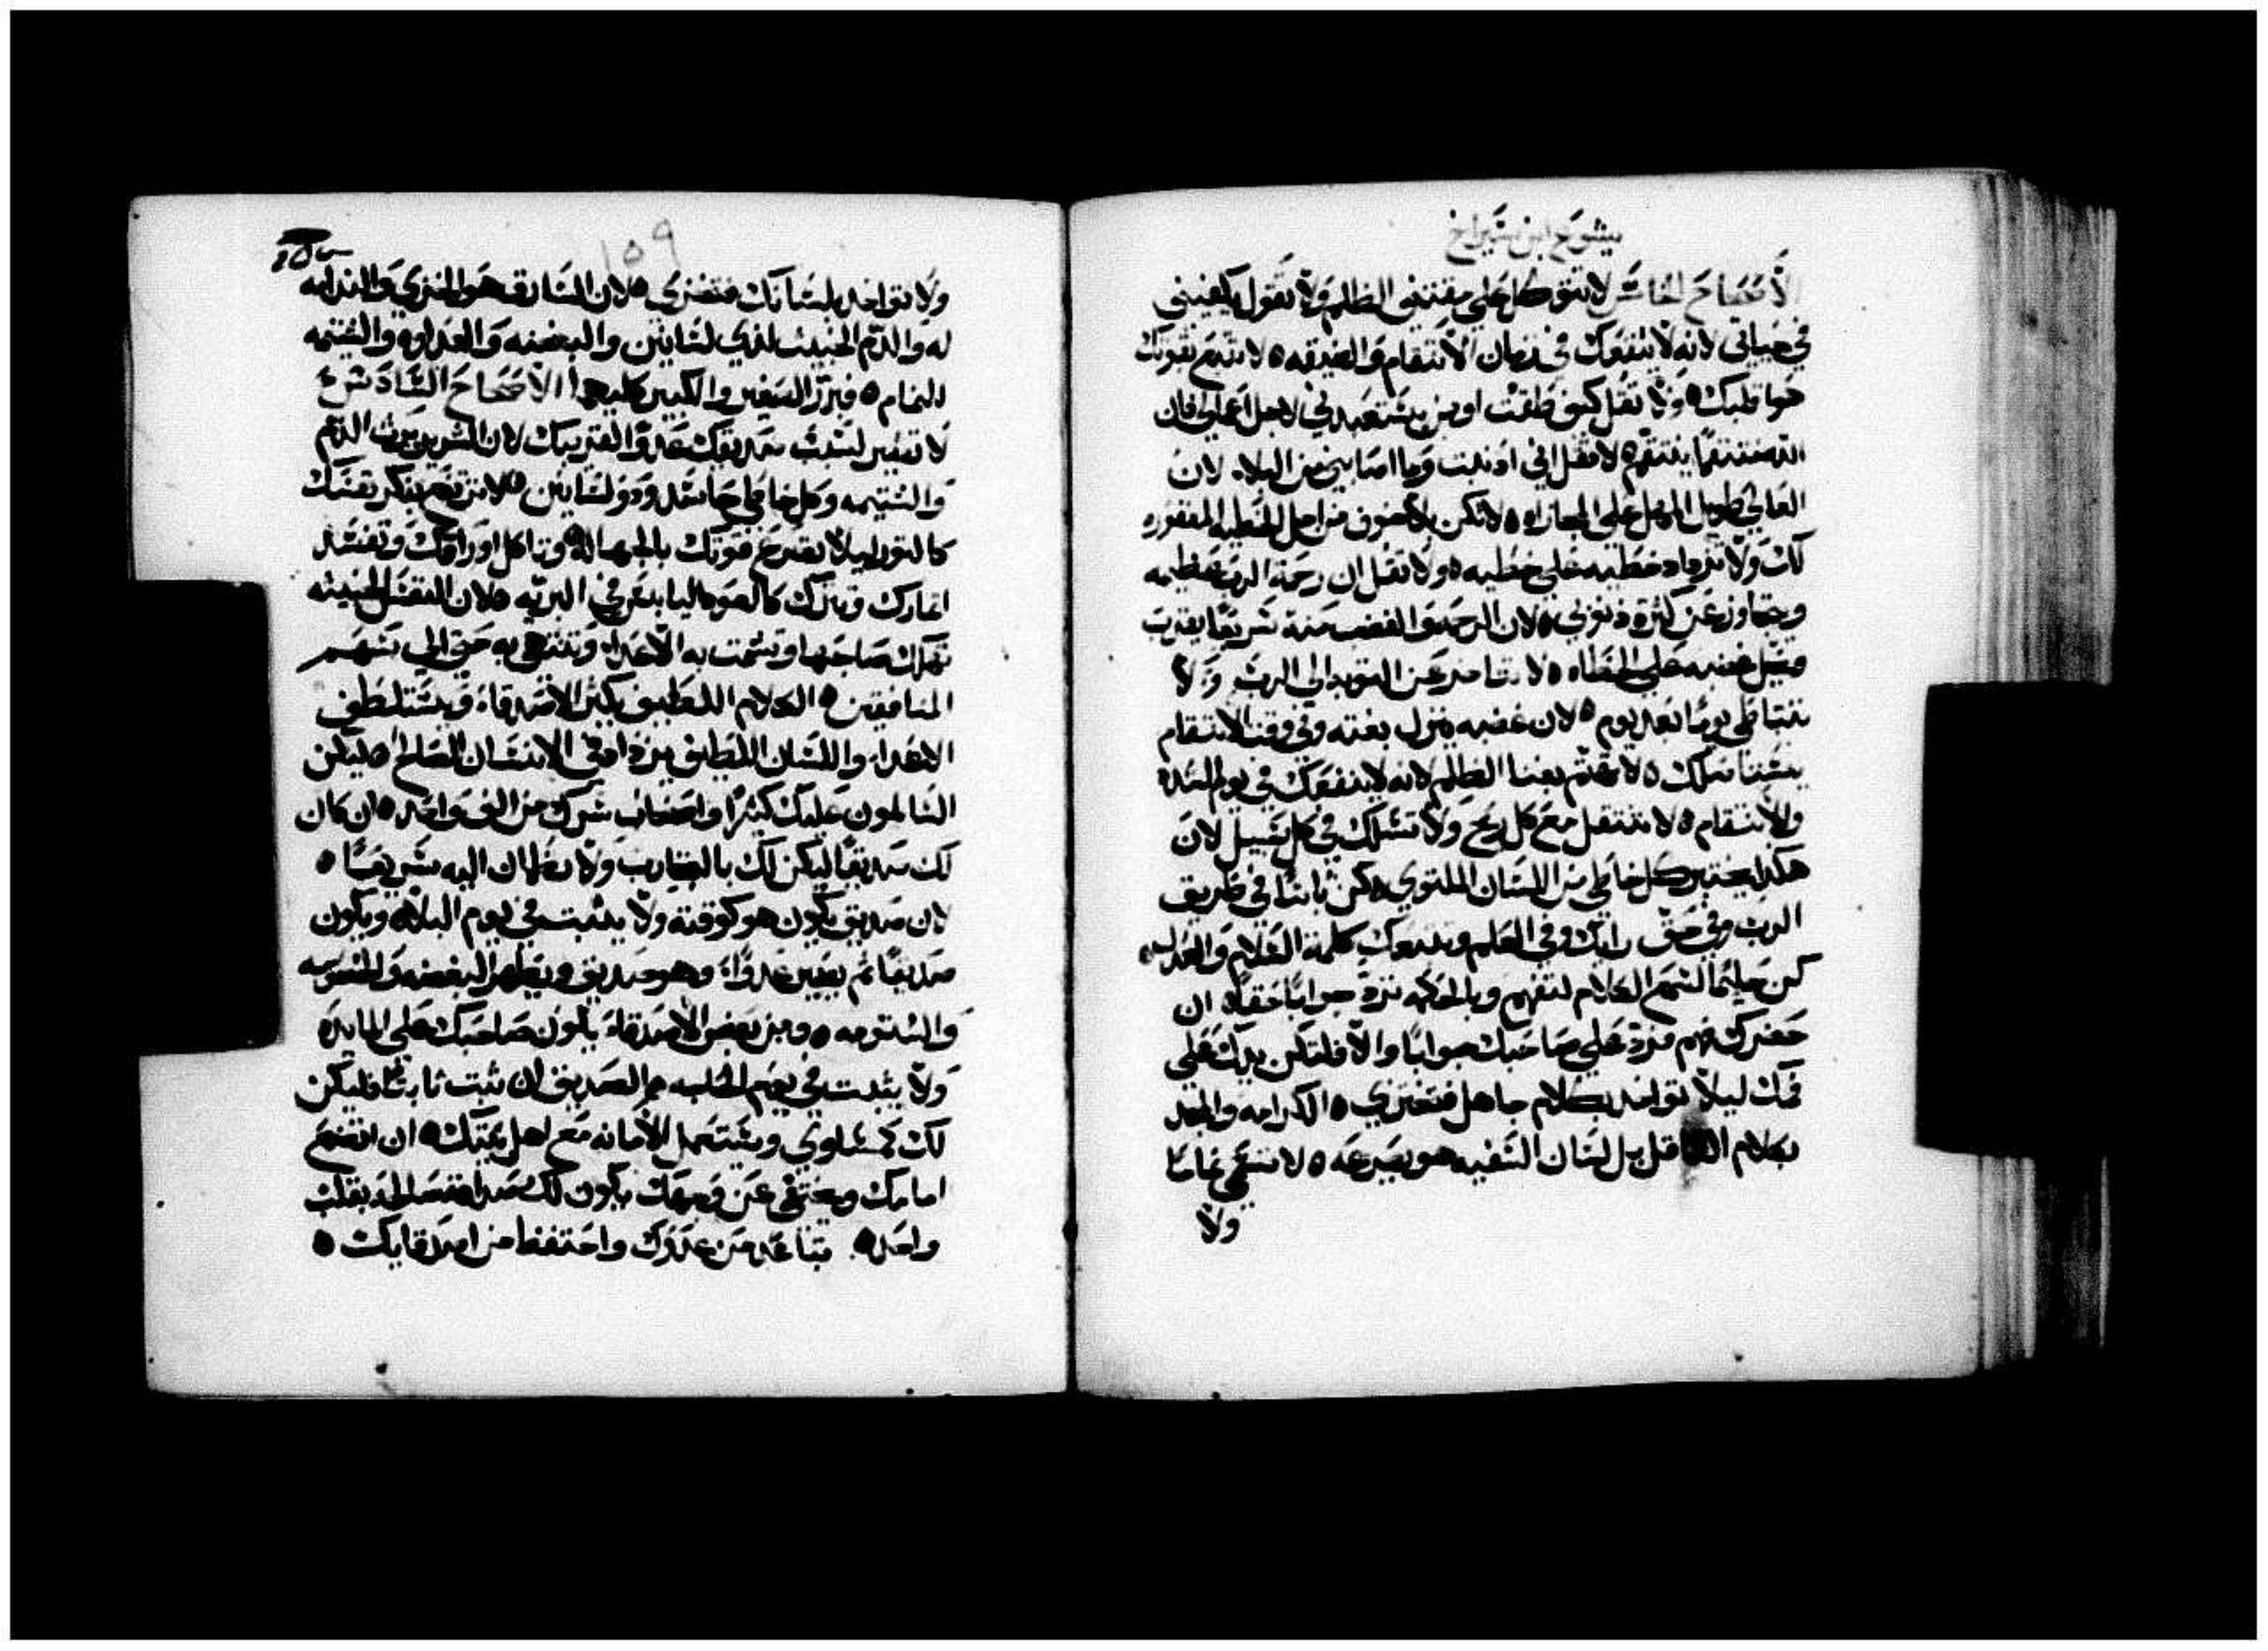 يشوع ابن سيراخ
الأصحاح الخامس لا تتوكل علي مقتني الظالم ولا تقول يكفيني
في حياتي لانه لا ينفعك في زمان الانتقام والضيقه ٥ لا تتبع بقوتك
هوا قلبك ٥ ولا تقل كيف طقت او من يستعبدني لاجل اعمالي فان
الله منتقمًا ينتقم ٥ لا تقل اني اذنبت وما اصابني من البلاء لان
العالي طويل المهل علي المجازاه ٥ لا تكن بلا خوف من اجل الخطيه المغفوره
لك ولا تزداد خطيه علي خطيه ٥ ولا تقل ان رحمة الرب عظيمه
ويتجاوز عن كثرة ذنوبي ٥ لان الرحمه والغضب منه سريعًا يقترب
ويتبل غضبه علي الخطاه ٥ لا تتاخر عن التوبه الي الرب ولا
تتباطي يومًا بعد يوم ٥ لان غضبه ينزل بغته وفي وقت الانتقام
يستاصلك ٥ لا تهتم بغنا الظالم لانه لا ينفعك في يوم الشده
والانتقام ٥ لا تنتقل مع كل ريح ولا تسلك في كل سبيل لان
هكذا يختبر كل خاطي من اللسان الملتوي ٥ كن ثابتًا في طريق
الرب وفي حق رايك وفي العلم وتتبعك كلمة السلام والعدل ٥
كن حليمًا لتسمع الكلام لتفهم وبالحكمه ترد جوابًا حقًا ٥ ان
حضرك فهم فرد علي صاحبك جوابًا والا فلتكن يدك علي
فمك ليلا تواخد بكلام جاهل فتخزي ٥ الكرامه والمجد
بكلام العاقل بل لسان السفيه هو يصرعه ٥ لا تسمي نمامًا
ولا
١٥٩
ولا تواخد بلسانك فتخزي ٥ لان السارق هو الخزي والندامه
له والدم الخبيث لذي لسانين والبغضه والعداوه والشتيمه
للنمام ٥ فبرر الصغير والكبير كليهما الأصحاح السادس
لا تصير لسبب صديقك عدوًا لقريبك لان الشرير يرث الدم
والشتيمه وكل خاطي حاسد وذو لسانين ٥ لا ترتفع بفكر نفسك
كالتور ليلا تصرع قوتك بالجهاله ٥ وتاكل اوراقك وتفسد
اثمارك وتترك كالعود اليابس في البريه ٥ لان النفس الخبيثه
تهلك صاحبها وتشمت به الاعدا وتنتهي به حتي الي سهم
المنافقين ٥ الكلام اللطيف يكثر الاصدقا ويستلطف
الاعدا واللسان اللطيف يزداد في الانسان الصالح ٥ ليكن
السالمون عليك كثيرًا واصحاب سرك من الف واحد ٥ ان كان
لك صديقًا ليكن لك بالتجارب ولا تطمان اليه سريعًا ٥
لان صديق يكون هو كوقته ولا يثبت في يوم البلاء ويكون
صديقًا ثم يصير عدوًا وهو صديق ويظهر البغضه والخصومه
والشتومه ٥ ومن بعض الأصدقاء يكون صاحبك علي المايده
ولا يثبت في يوم الحاجه ٥ الصديق ان ثبت ثابتًا فليكن
لك كمساوي ويستعمل الأمانه مع اهل بيتك ٥ ان اتضع
امامك ويختفي عن وجهك يكون لك صداقة صالحه بقلب
واحد ٥ تباعد من عدوك واحتفظ من اصدقايك ٥